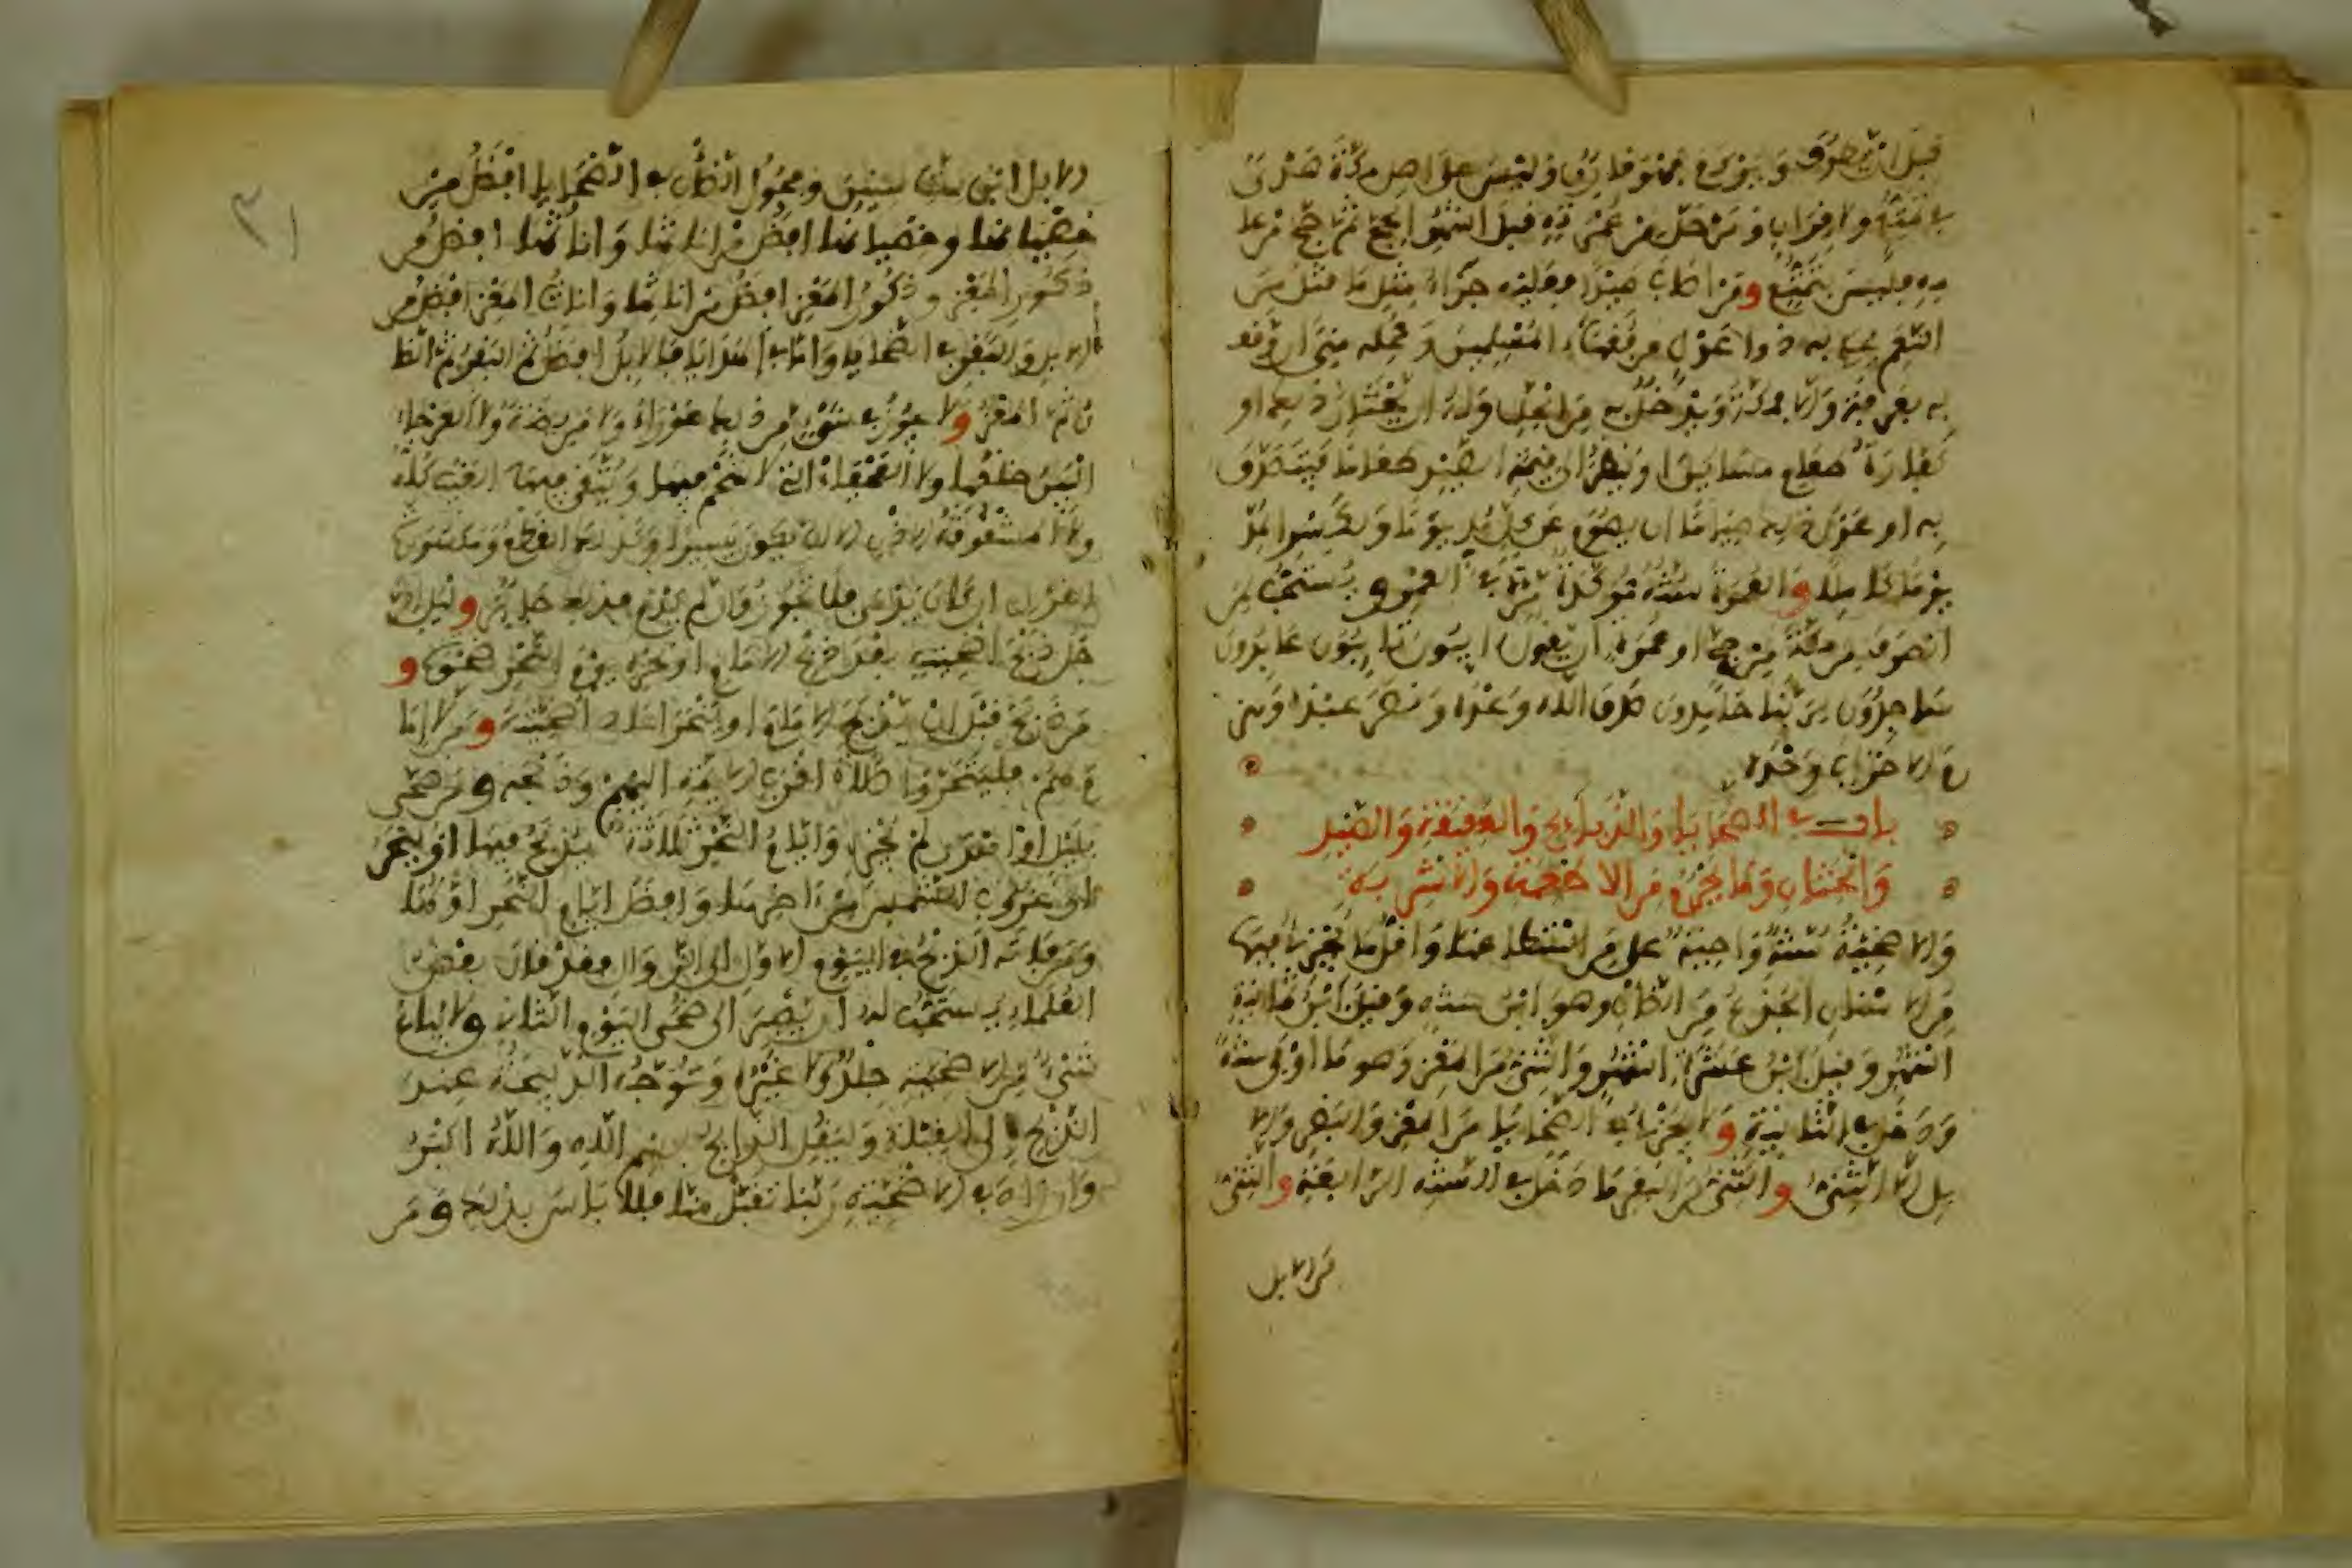 قبل ان يحرم من يوم عرفة فان ذلك وليس على اهل مكة هدي
تمتع ولا قران ومن حل من عمرته قبل اشهر الحج ثم حج من عا
مه فليس بتمتع ومن اصاب صيدا فعليه جزاء مثل ما قتل من
النعم يحكم به ذوا عدل من فقهاء المسلمين ومحله منى ان وقف
به بعرفة والا بمكة ويدخل به من الحل وله ان يختار ذلك او
كفارة طعام مساكين ان ينظر الى قيمة الصيد طعاما فيتصدق
به او عدل ذلك صياما ان يصوم عن كل مد يوما ولكسر المد
يوما كاملا والعمرة سنة مؤكدة مرة في العمر ويستحب لمن
انصرف من مكة من حج او عمرة ان يقول ايبون تايبون عابدون
ساجدون لربنا حامدون صدق الله وعده ونصر عبده وهز
م الاحزاب وحده
باب في الضحايا والذبايح والعقيقة والصيد
والختان وما يحرم من الاطعمة والاشربة
والاضحية سنة واجبة على من استطاعها واقل ما يجزئ فيها
من الاسنان الجذع من الضأن وهو ابن سنة وقيل ابن ثمانية
اشهر وقيل ابن عشرة اشهر والثني من المعز وهو ما اوفى سنة
ودخل في الثانية ولا يجزئ في الضحايا من المعز والبقر والا
بل الا الثني والثني من البقر ما دخل في السنة الرابعة والثني
من الابل
الابل ابن ست سنين وفحول الضأن في الضحايا افضل من
خصيانها وخصيانها افضل من اناثها واناثها افضل من
ذكور المعز وذكور المعز افضل من اناثها واناث المعز افضل من
الابل والبقر في الضحايا واما في الهدايا فالابل افضل ثم البقر ثم الضا
ن ثم المعز ولا يجوز في شيء من ذلك عوراء ولا مريضة ولا العرجاء
البين ضلعها ولا العجفاء التي لا شحم فيها ويتقى فيها العيب كله
ولا المشقوقة الاذن الا ان يكون يسيرا وكذلك القطع ومكسورة
القرن ان كان يدمي فلا يجوز وان لم يدم فذلك جائز وليل الر
جل ذبح اضحيته بعد ذبح الامام او نحره يوم النحر ضحوة و
من ذبح قبل ان يذبح الامام او ينحر اعاد اضحيته ومن لا اما
م لهم فليتحروا صلاة اقرب الايمة اليهم وذبحه ومن ضحى
بليل او اهدى لم يجزه وايام النحر ثلاثة يذبح فيها او ينحر
الى غروب الشمس من اخرها وافضل ايام النحر اولها
ومن فاته الذبح في اليوم الاول الى الزوال فقد قال بعض
العلماء يستحب له ان يصبر الى ضحى اليوم الثاني ولا يباع
شيء من الاضحية جلد ولا غيره وتوجه الذبيحة عند
الذبح الى القبلة وليقل الذابح بسم الله والله اكبر
وان زاد في الاضحية ربنا تقبل منا فلا باس بذلك ومن